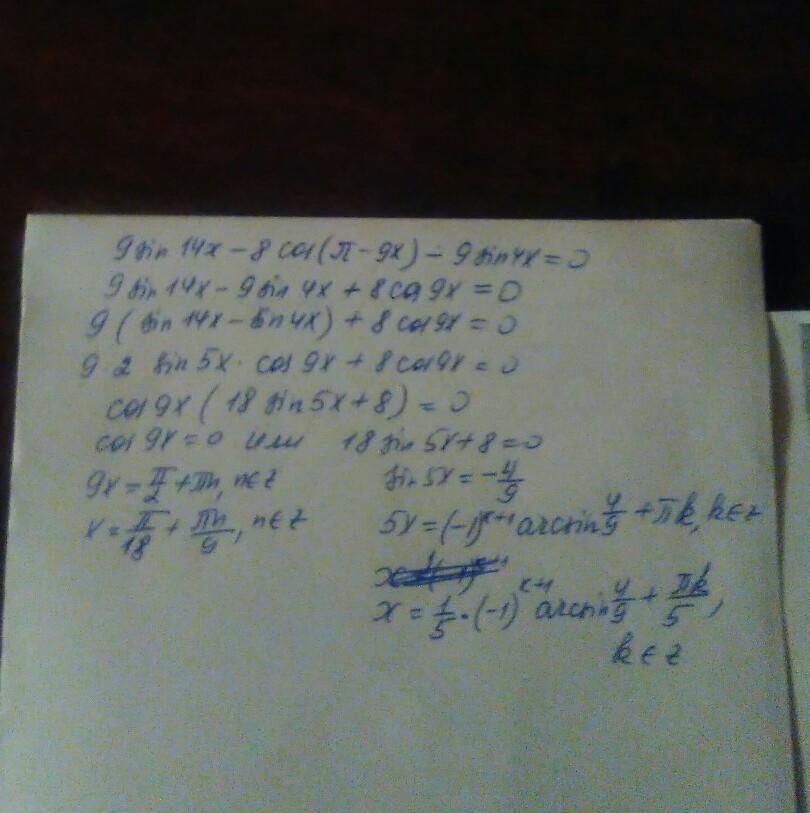 9 sin 14x - 8 cos(π - 9x) - 9 sin 4x = 0
9 sin 14x - 9 sin 4x + 8 cos 9x = 0
9 ( sin 14x - sin 4x) + 8 cos 9x = 0
9 2 sin 5x · cos 9x + 8 cos 9x = 0
cos 9x ( 18 sin 5x + 8) = 0
cos 9x = 0 или 18 sin 5x + 8 = 0
9x = π/2 + πn, n∈z
x = π/18 + πn/9, n∈z
sin 5x = -4/9
5x = (-1)^(k+1) arcsin 4/9 + πk, k∈z
x = 1/5 · (-1)^(k+1) arcsin 4/9 + πk/5,
k∈z